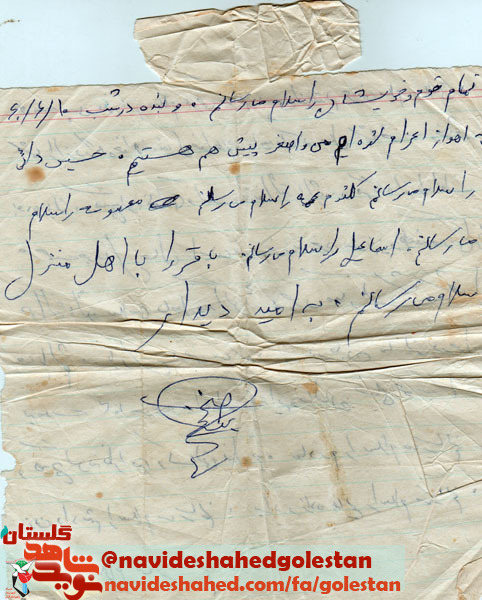 تمام قوم و خویشان را سلام میرسانم. و بنده در شب ۶۰/۶/۱۰
به اهواز اعزام شده‌ام من و اصغر پیش هم هستیم. حسین دائی
را سلام میرسانم را سلام میرسانم معصومه را سلام
میرسانم. اسماعیل را سلام میرسانم. باقر را با اهل منزل
سلام میرسانم. به امید دیدار
گلستان
نوید شاهد
@navideshahedgolestan
navideshahed.com/fa/golestan